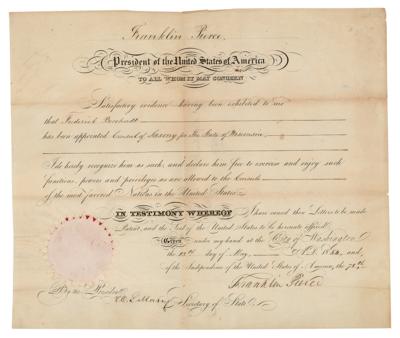 Franklin Pierce,
President of the United States of America
TO ALL WHOM IT MAY CONCERN
Satisfactory evidence having been exhibited to me
that Frederick
has been appointed Consul of Saxony for the State of Wisconsin
I do hereby recognize him as such, and declare him free to exercise and enjoy such
functions, powers and privileges as are allowed to the Consuls
of the most favored Nations in the United States.
IN TESTIMONY WHEREOF I have caused these Letters to be made
Patent, and the Seal of the United States to be hereunto affixed.
Given under my hand at the City of Washington
the 12th day of May, A.D. and
of the Independence of the United States of America, the 78th
Franklin Pierce
By the President
Secretary of State